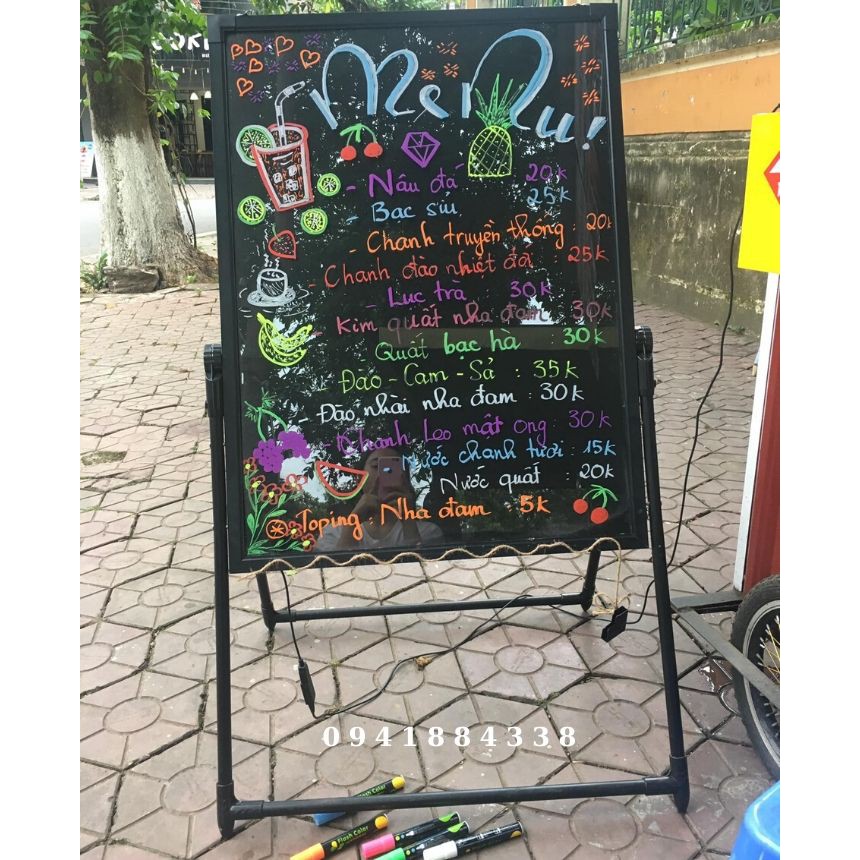 MeNu!
- Nâu đá 20k
- Bạc sỉu 25k
- Chanh truyền thống : 20k
- Chanh đào nhiệt đới : 25k
- Lục trà 30k
- Kim quất nha đam : 30k
Quất bạc hà : 30k
- Đào - Cam - Sả : 35k
- Đào nhài nha đam : 30k
- Chanh leo mật ong : 30k
Nước chanh tươi : 15k
Nước quất : 20k
Toping : Nha đam 5k
0941884338
Flash Color